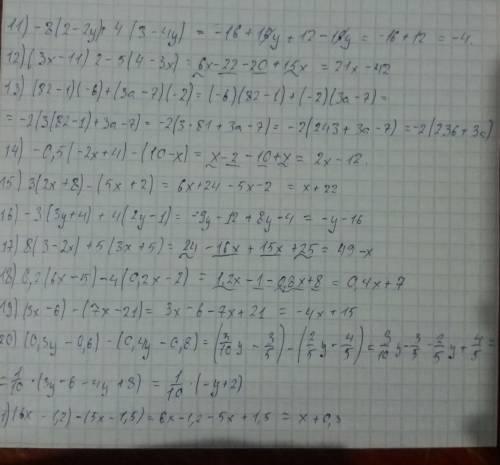 11) -8(2-2y)+4(3-4y) = -16+16y+12-16y = -16+12 = -4.
12) (3x-11)2-5(4-3x) = 6x-22-20+15x = 21x-42
13) (82-1)(-6)+(3a-7)(-2) = (-6)(82-1)+(-2)(3a-7) =
= -2(3(82-1)+3a-7) = -2(3·81+3a-7) = -2(243+3a-7) = -2(236+3a)
14) -0,5(-2x+4)-(10-x) = x-2-10+x = 2x-12.
15) 3(2x+8)-(5x+2) = 6x+24-5x-2 = x+22
16) -3(3y+4)+4(2y-1) = -9y-12+8y-4 = -y-16
17) 8(3-2x)+5(3x+5) = 24-16x+15x+25 = 49-x
18) 0,2(6x-5)-4(0,2x-2) = 1,2x-1-0,8x+8 = 0,4x+7
19) (3x-6)-(7x-21) = 3x-6-7x+21 = -4x+15
20) (0,3y-0,6)-(0,4y-0,8) = (3/10 y - 3/5)-(2/5 y - 4/5) = 3/10 y - 3/5 - 2/5 y + 4/5 =
= 1/10 · (3y-6-4y+8) = 1/10 · (-y+2)
1) (6x-1,2)-(5x-1,5) = 6x-1,2-5x+1,5 = x+0,3